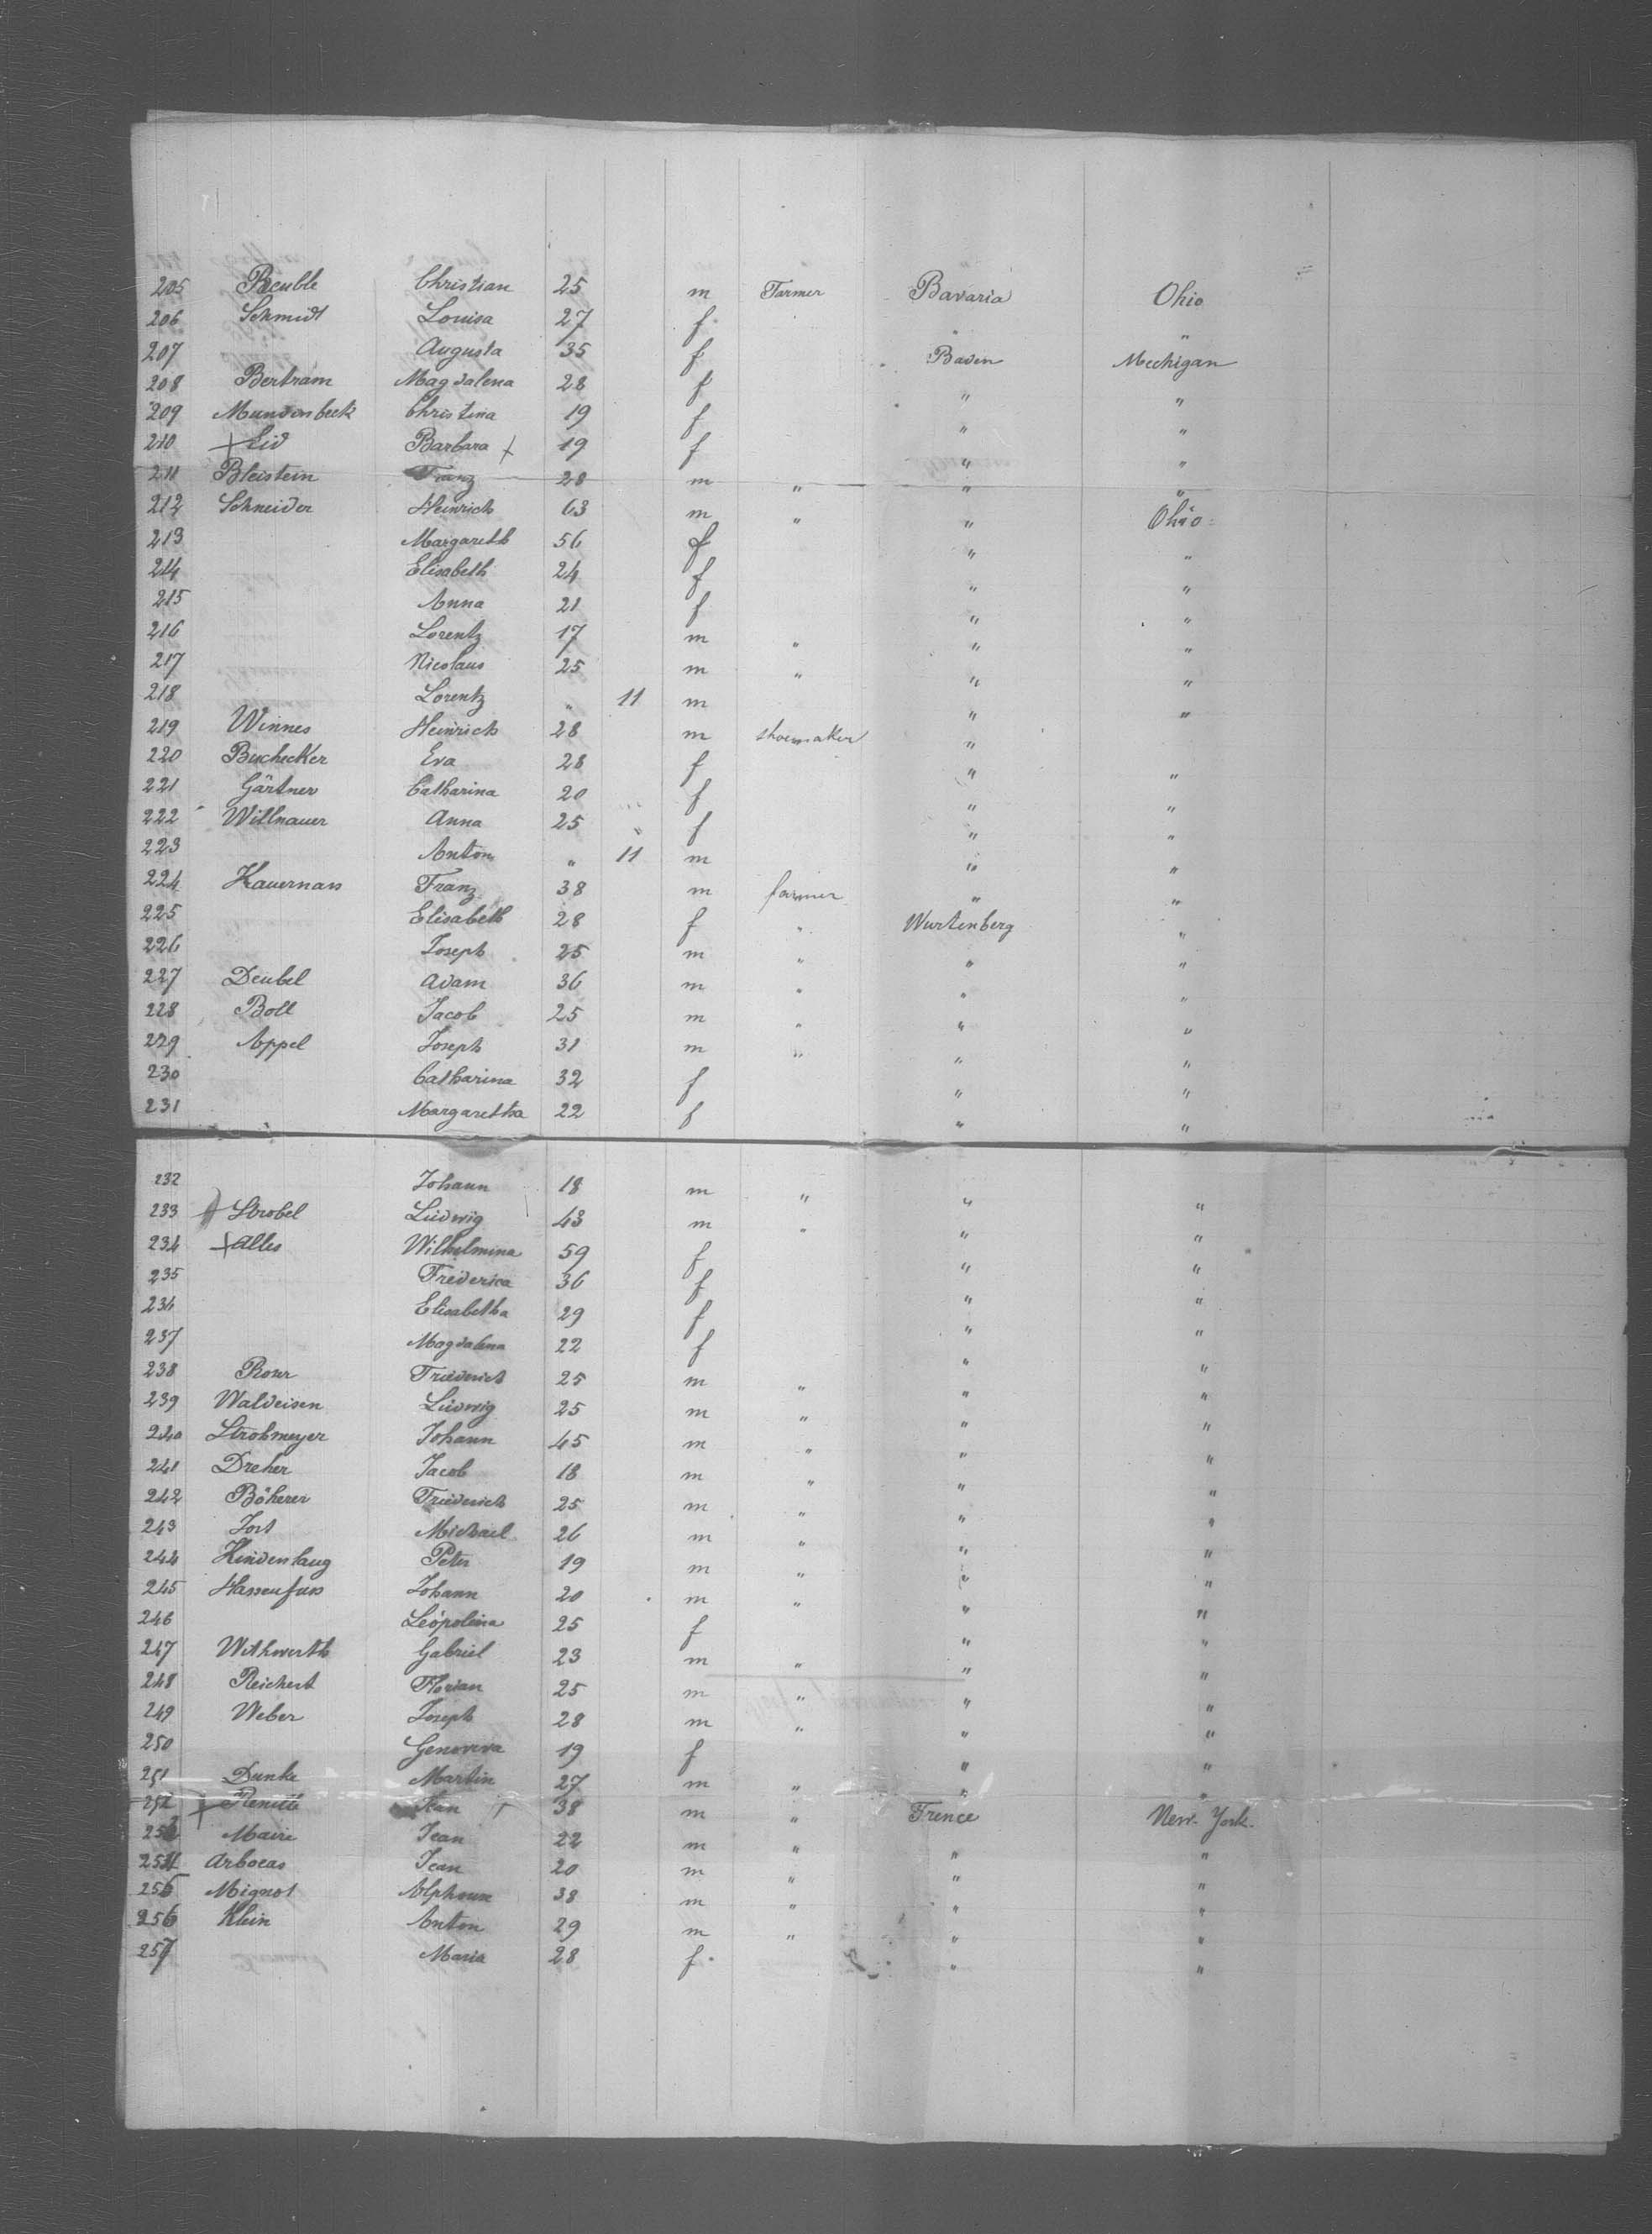 205 Beuble Christian 25 m Farmer Bavaria Ohio
206 Schmidt Louisa 27 f " "
207 Augusta 35 f Baden Mechigan
208 Bertram Magdalena 28 f " "
209 Mundenbeck Christina 19 f " "
210 Eid Barbara 19 f " "
211 Bleistein Franz 28 m " " "
212 Schneider Heinrich 63 m " " Ohio
213 Margareth 56 f " "
214 Elisabeth 24 f " "
215 Anna 21 f " "
216 Lorentz 17 m " " "
217 Nicolaus 25 m " " "
218 Lorentz " 11 m " "
219 Winnes Heinrich 28 m shoemaker "
220 Buchecker Eva 28 f " "
221 Gärtner Catharina 20 f " "
222 Willnauer Anna 25 " f " "
223 Anton " 11 m " "
224 Franz 38 m farmer " "
225 Elisabeth 28 f " Wurtenberg "
226 Joseph 25 m " " "
227 Deubel Adam 36 m " " "
228 Boll Jacob 25 m " " "
229 Appel Joseph 31 m " " "
230 Catharina 32 f " "
231 Margaretha 22 f " "
232 Johann 18 m " " "
233 Strobel Ludwig 43 m " " "
234 Alles Wilhelmina 59 f " "
235 Frederica 36 f " "
236 Elisabetha 29 f " "
237 Magdalena 22 f " "
238 Friederich 25 m " " "
239 Waldeisen Ludwig 25 m " " "
240 Strohmeyer Johann 45 m " " "
241 Dreher Jacob 18 m " " "
242 Böherer Friederich 25 m " " "
243 Jost Michael 26 m " " "
244 Hindenlaug Peter 19 m " " "
245 Hassenfuss Johann 20 m " " "
246 Leopolina 25 f " "
247 Withwerth Gabriel 23 m " " "
248 Reichert Florian 25 m " " "
249 Weber Joseph 28 m " " "
250 Genoveva 19 f " "
251 Dunke Martin 27 m " " "
252 Jean 38 m " Frence New-York
253 Maire Jean 22 m " " "
254 Arbocas Jean 20 m " " "
255 Mignot Alphonse 38 m " " "
256 Klein Anton 29 m " " "
257 Maria 28 f " "